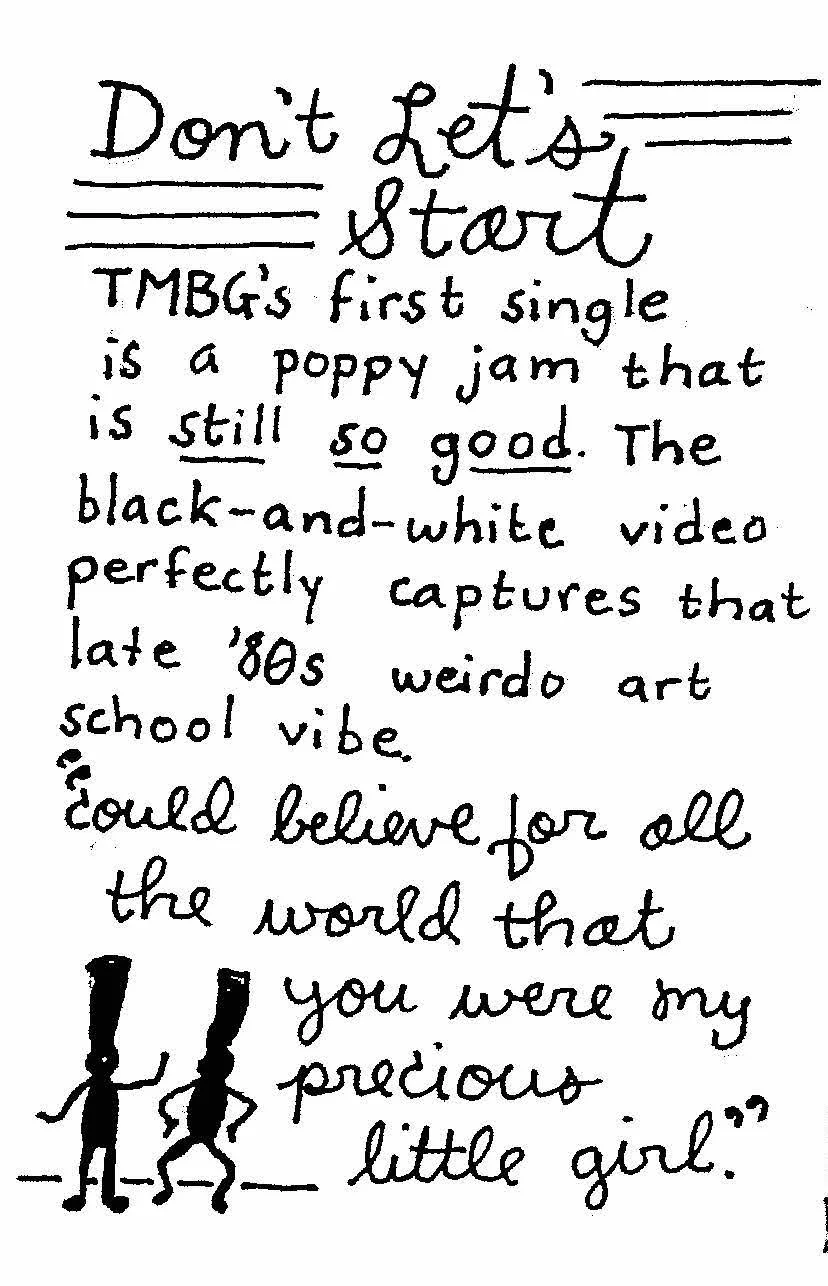 Don't Let's
Start
TMBG's first single
is a poppy jam that
is still so good. The
black-and-white video
perfectly captures that
late '80s weirdo art
school vibe.
"could believe for all
the world that
you were my
precious
little girl."